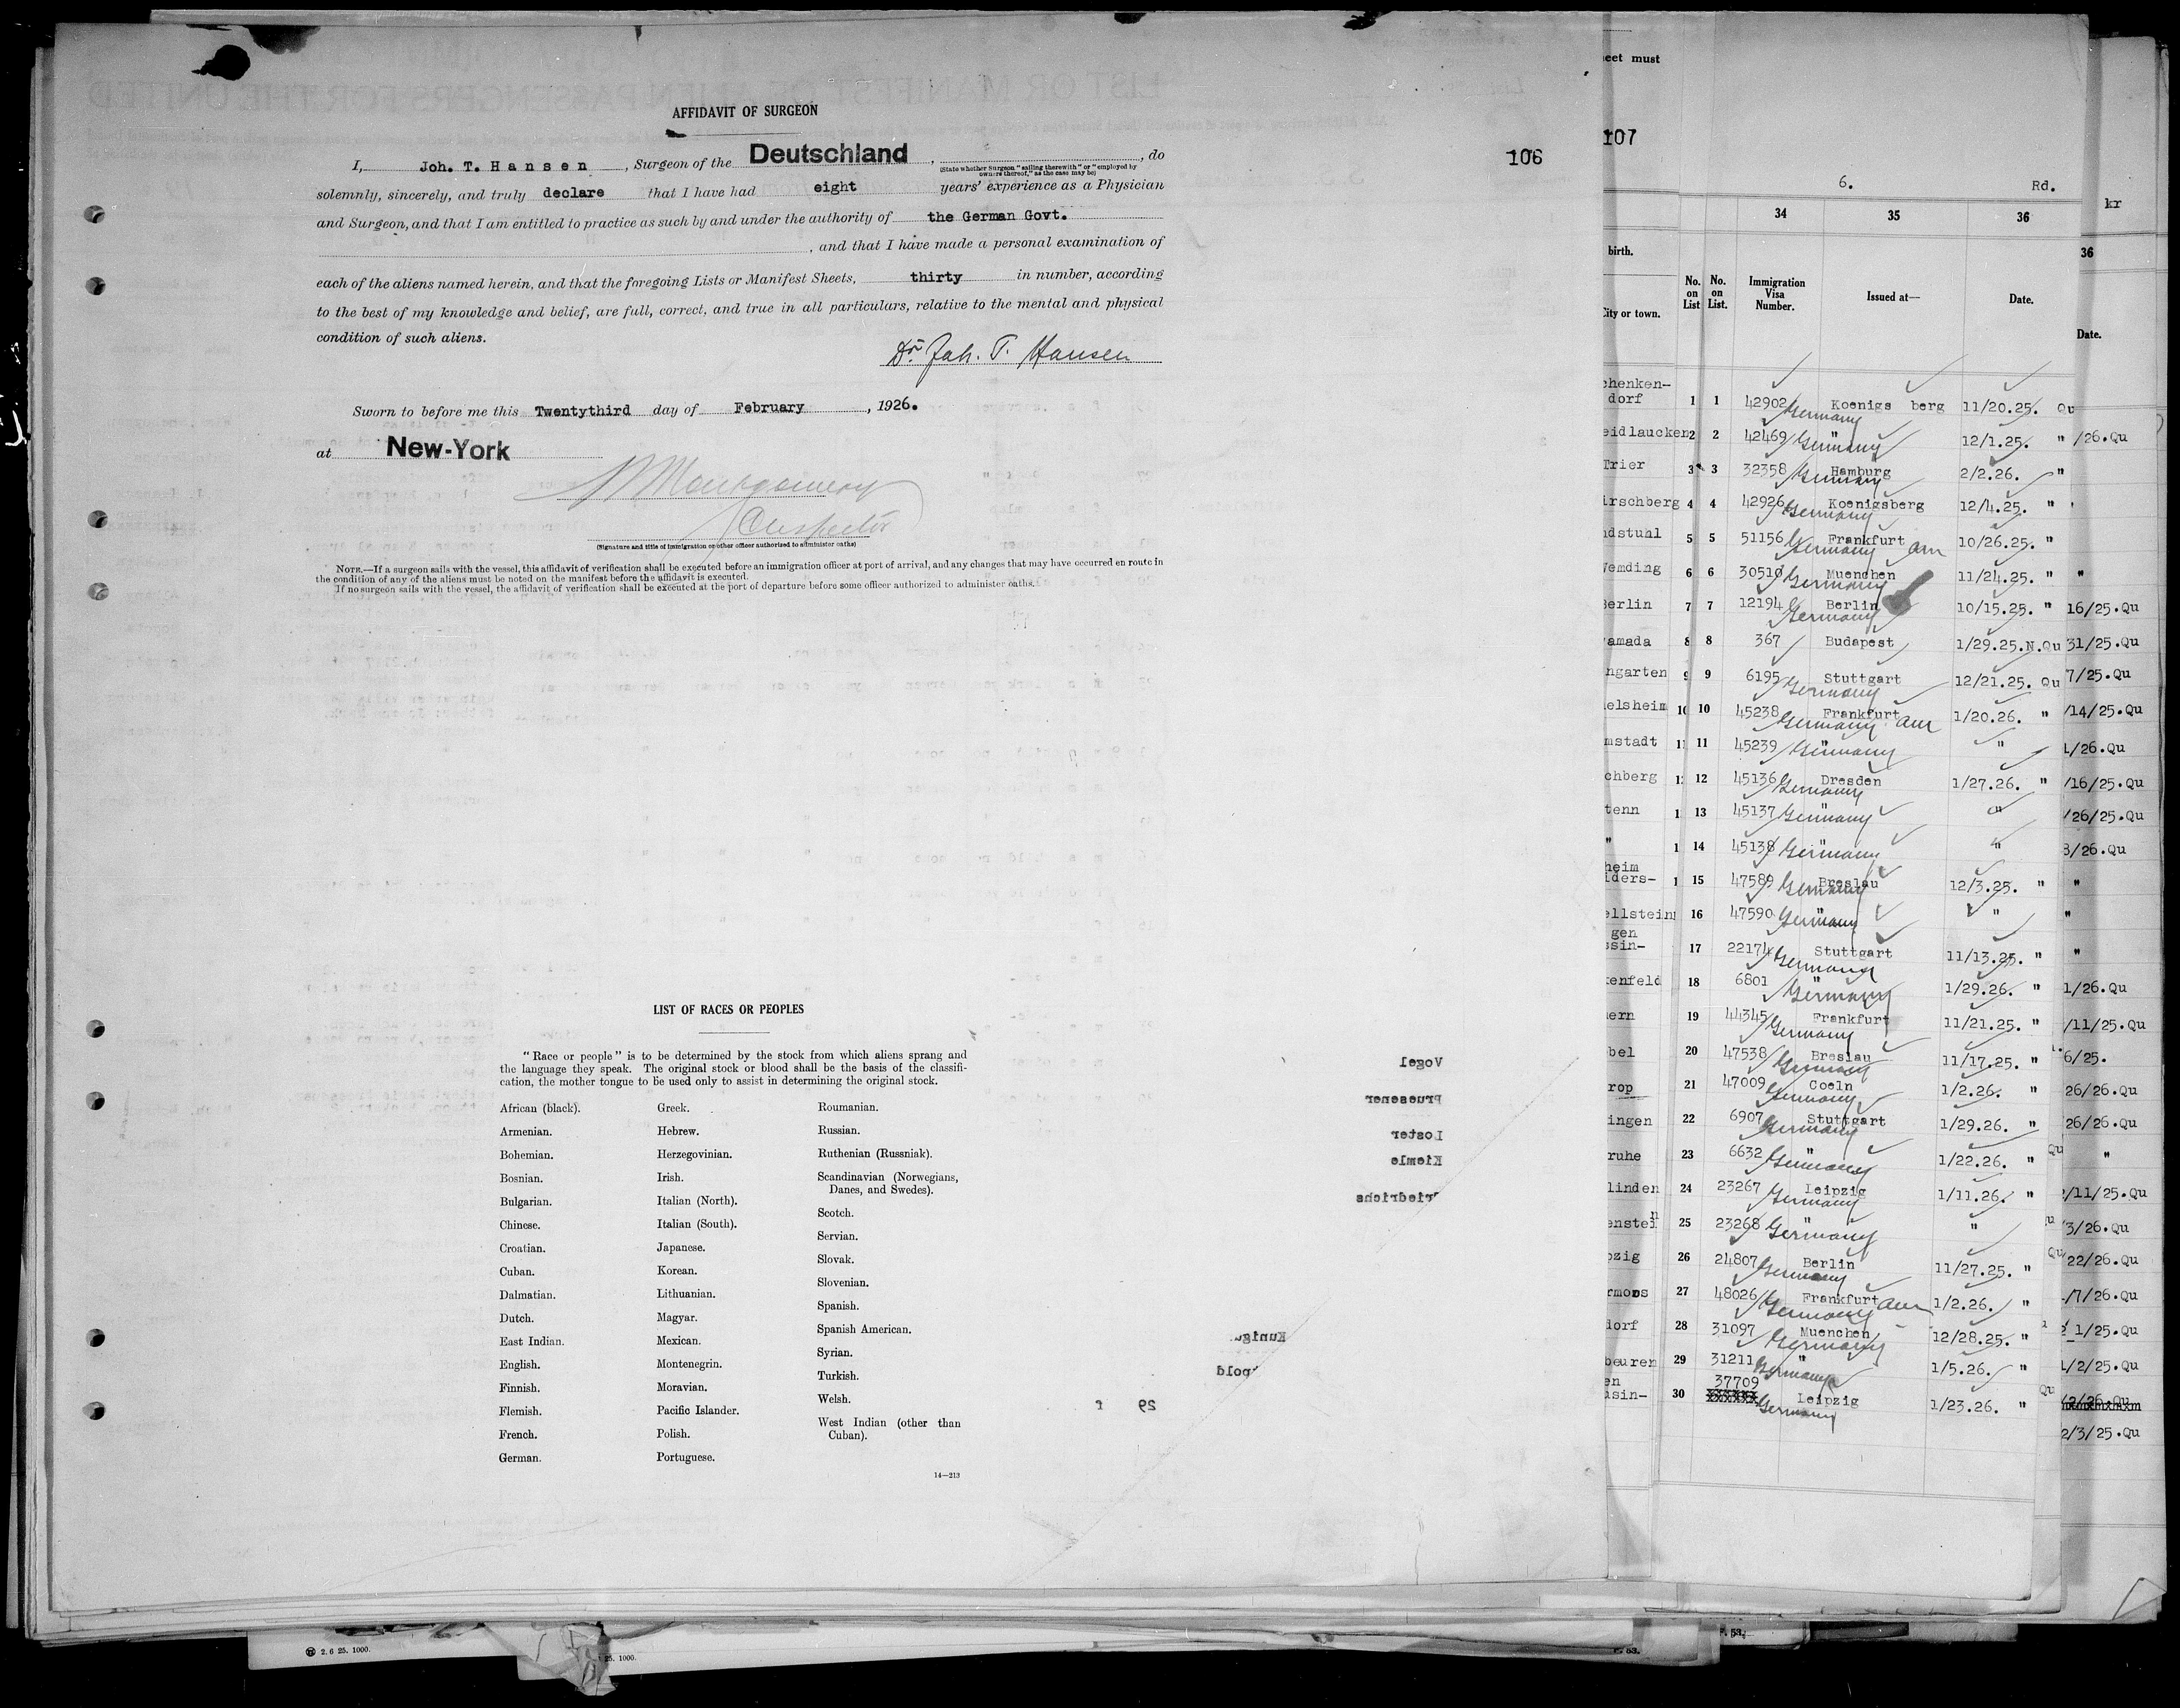 AFFIDAVIT OF SURGEON
I, Joh. T. Hansen, Surgeon of the Deutschland, , do
(State whether Surgeon "sailing therewith" or "employed by
owners thereof," as the case may be)
solemnly, sincerely, and truly declare that I have had eight years' experience as a Physician
and Surgeon, and that I am entitled to practice as such by and under the authority of the German Govt.
, and that I have made a personal examination of
each of the aliens named herein, and that the foregoing Lists or Manifest Sheets, thirty in number, according
to the best of my knowledge and belief, are full, correct, and true in all particulars, relative to the mental and physical
condition of such aliens.
Dr. Joh. T. Hansen
Sworn to before me this Twentythird day of February, 1926.
at New-York
Montgomery
Inspector
(Signature and title of immigration or other officer authorized to administer oaths)
NOTE.—If a surgeon sails with the vessel, this affidavit of verification shall be executed before an immigration officer at port of arrival, and any changes that may have occurred en route in
the condition of any of the aliens must be noted on the manifest before the affidavit is executed.
If no surgeon sails with the vessel, the affidavit of verification shall be executed at the port of departure before some officer authorized to administer oaths.
106
LIST OF RACES OR PEOPLES
"Race or people" is to be determined by the stock from which aliens sprang and
the language they speak. The original stock or blood shall be the basis of the classifi-
cation, the mother tongue to be used only to assist in determining the original stock.
African (black).
Armenian.
Bohemian.
Bosnian.
Bulgarian.
Chinese.
Croatian.
Cuban.
Dalmatian.
Dutch.
East Indian.
English.
Finnish.
Flemish.
French.
German.
Greek.
Hebrew.
Herzegovinian.
Irish.
Italian (North).
Italian (South).
Japanese.
Korean.
Lithuanian.
Magyar.
Mexican.
Montenegrin.
Moravian.
Pacific Islander.
Polish.
Portuguese.
Roumanian.
Russian.
Ruthenian (Russniak).
Scandinavian (Norwegians,
Danes, and Swedes).
Scotch.
Servian.
Slovak.
Slovenian.
Spanish.
Spanish American.
Syrian.
Turkish.
Welsh.
West Indian (other than
Cuban).
14—213
eet must
107
6. Rd.
34 35 36
birth.
City or town.
No. on List
No. on List.
Immigration Visa Number.
Issued at—
Date.
chenken-
dorf 1 1 42902 Germany Koenigs berg 11/20.25. Qu
eidlaucken 2 2 42469 Germany " 12/1.25. "
Trier 3 3 32358 Germany Hamburg 2/2.26. "
irschberg 4 4 42926 Germany Koenigsberg 12/4.25. "
ndstuhl 5 5 51156 Germany Frankfurt am 10/26.25. "
Wemding 6 6 30510 Germany Muenchen 11/24.25. "
Berlin 7 7 12194 Germany Berlin 10/15.25. "
amada 8 8 367 Budapest 1/29.25.N.Qu
ngarten 9 9 6195 Germany Stuttgart 12/21.25. Qu
elsheim 10 10 45238 Germany Frankfurt am 1/20.26. "
mstadt 11 11 45239 Germany " "
chberg 12 45136 Germany Dresden 1/27.26. "
tenn 13 45137 Germany " "
" 14 45138 Germany " "
heim
iders- 15 47589 Germany Breslau 12/3.25. "
ellstein 16 47590 Germany " "
gen
ssin- 17 22174 Germany Stuttgart 11/13.25. "
kenfeld 18 6801 Germany " 1/29.26. "
ern 19 44345 Germany Frankfurt 11/21.25. "
bel 20 47538 Germany Breslau 11/17.25. "
rop 21 47009 Germany Coeln 1/2.26. "
ingen 22 6907 Germany Stuttgart 1/29.26. "
ruhe 23 6632 Germany " 1/22.26. "
linden 24 23267 Germany Leipzig 1/11.26. "
enstein 25 23268 Germany " "
pzig 26 24807 Germany Berlin 11/27.25. "
rmons 27 48026 Germany Frankfurt am 1/2.26. "
dorf 28 31097 Germany Muenchen 12/28.25. "
beuren 29 31211 Germany " 1/5.26. "
en
usin- 30 37709 Germany Leipzig 1/23.26. "
kr
36
Date.
/26.Qu
"
16/25.Qu
31/25.Qu
7/25.Qu
/14/25.Qu
1/26.Qu
/16/25.Qu
/26/25.Qu
3/26.Qu
"
"
"
1/26.Qu
/11/25.Qu
6/25.
26/26.Qu
26/26.Qu
"
/11/25.Qu
/3/26.Qu
22/26.Qu
/7/26.Qu
1/25.Qu
1/2/25.Qu
/2/26.Qu
2/3/25.Qu
Vogel
Pruesener
Loster
Kiemle
Friedrichs
29 f
2. 6 25. 1000.
25. 1000.
F. 53.